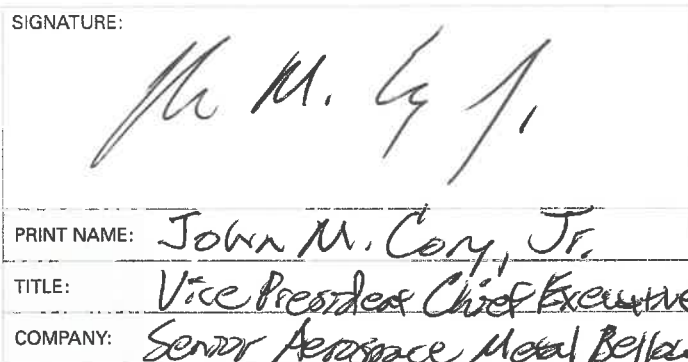 SIGNATURE:
John M. Cory Jr.
PRINT NAME: John M. Cory, Jr.
TITLE: Vice President Chief Executive
COMPANY: Senior Aerospace Metal Bellow